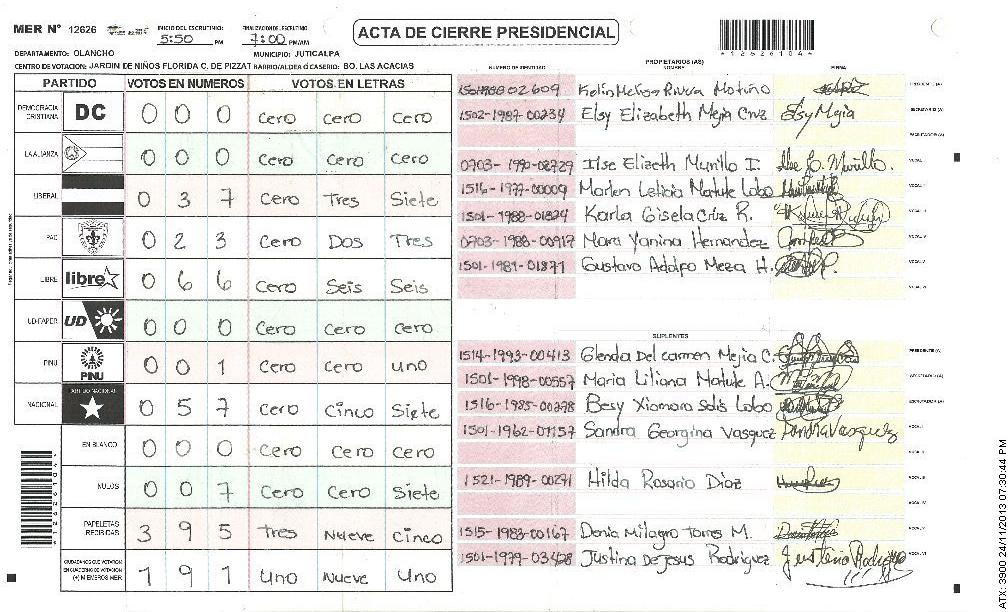 MER Nº 12626 INICIO DEL ESCRUTINIO: 5:50 PM FINALIZACION DEL ESCRUTINIO: 7:00 PM/AM ACTA DE CIERRE PRESIDENCIAL
DEPARTAMENTO: OLANCHO MUNICIPIO: JUTICALPA
CENTRO DE VOTACION: JARDIN DE NIÑOS FLORIDA C. DE PIZZAT BARRIO/ALDEA O CASERIO: BO. LAS ACACIAS
PARTIDO VOTOS EN NUMEROS VOTOS EN LETRAS
DEMOCRACIA CRISTIANA DC 0 0 0 cero cero cero
LA ALIANZA 0 0 0 cero cero cero
LIBERAL 0 3 7 cero Tres Siete
PAC 0 2 3 cero Dos Tres
LIBRE libre 0 6 6 cero Seis Seis
UD-FAPER UD 0 0 0 cero cero cero
PINU PINU 0 0 1 cero cero uno
NACIONAL PARTIDO NACIONAL 0 5 7 cero Cinco Siete
EN BLANCO 0 0 0 cero cero cero
NULOS 0 0 7 cero cero Siete
PAPELETAS RECIBIDAS 3 9 5 Tres Nueve cinco
CIUDADANOS QUE VOTARON EN CUADERNO DE VOTACION (+) MIEMBROS MER 1 9 1 Uno Nueve Uno
NUMERO DE IDENTIDAD PROPIETARIOS (AS) NOMBRE FIRMA
02609 Kelin Melissa Rivera PRESIDENTE (A)
1502-1987-00234 Elsy Elizabeth Mejia Cruz Elsy Mejia SECRETARIO (A)
ESCRUTADOR (A)
0703-1990-02729 Ilse Elizeth Murillo I. Ilse E. Murillo. VOCAL I
1516-1977-00009 Marlen Leticia Matute Lobo VOCAL II
1501-1988-01824 Karla Gisela Cruz R. VOCAL III
0703-1988-00917 Mara Yanina Hernandez VOCAL IV
1501-1981-01871 Gustavo Adolfo Meza H. VOCAL V
VOCAL VI
SUPLENTES
1514-1993-00413 Glenda Del carmen Mejia C. PRESIDENTE (A)
1501-1998-00557 Maria Liliana Matute A. SECRETARIO (A)
1516-1985-00298 Besy Xiomara Solis Lobo ESCRUTADOR (A)
1501-1962-01157 Sandra Georgina Vasquez Sandra Vasquez VOCAL I
VOCAL II
1521-1989-00291 Hilda Rosario Diaz VOCAL III
VOCAL IV
1515-1983-00167 Denia Milagro Torres M. VOCAL V
1501-1979-03428 Justina De Jesus Rodriguez Justina Rodriguez VOCAL VI
ATX: 3900 24/11/2013 07:30:44 PM